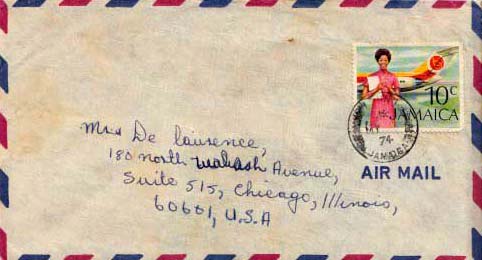 10c
JAMAICA
74
JAMAICA
AIR MAIL
Mrs De Laurence,
180 north Wabash Avenue,
Suite 515, Chicago, Illinois,
60601, U.S.A